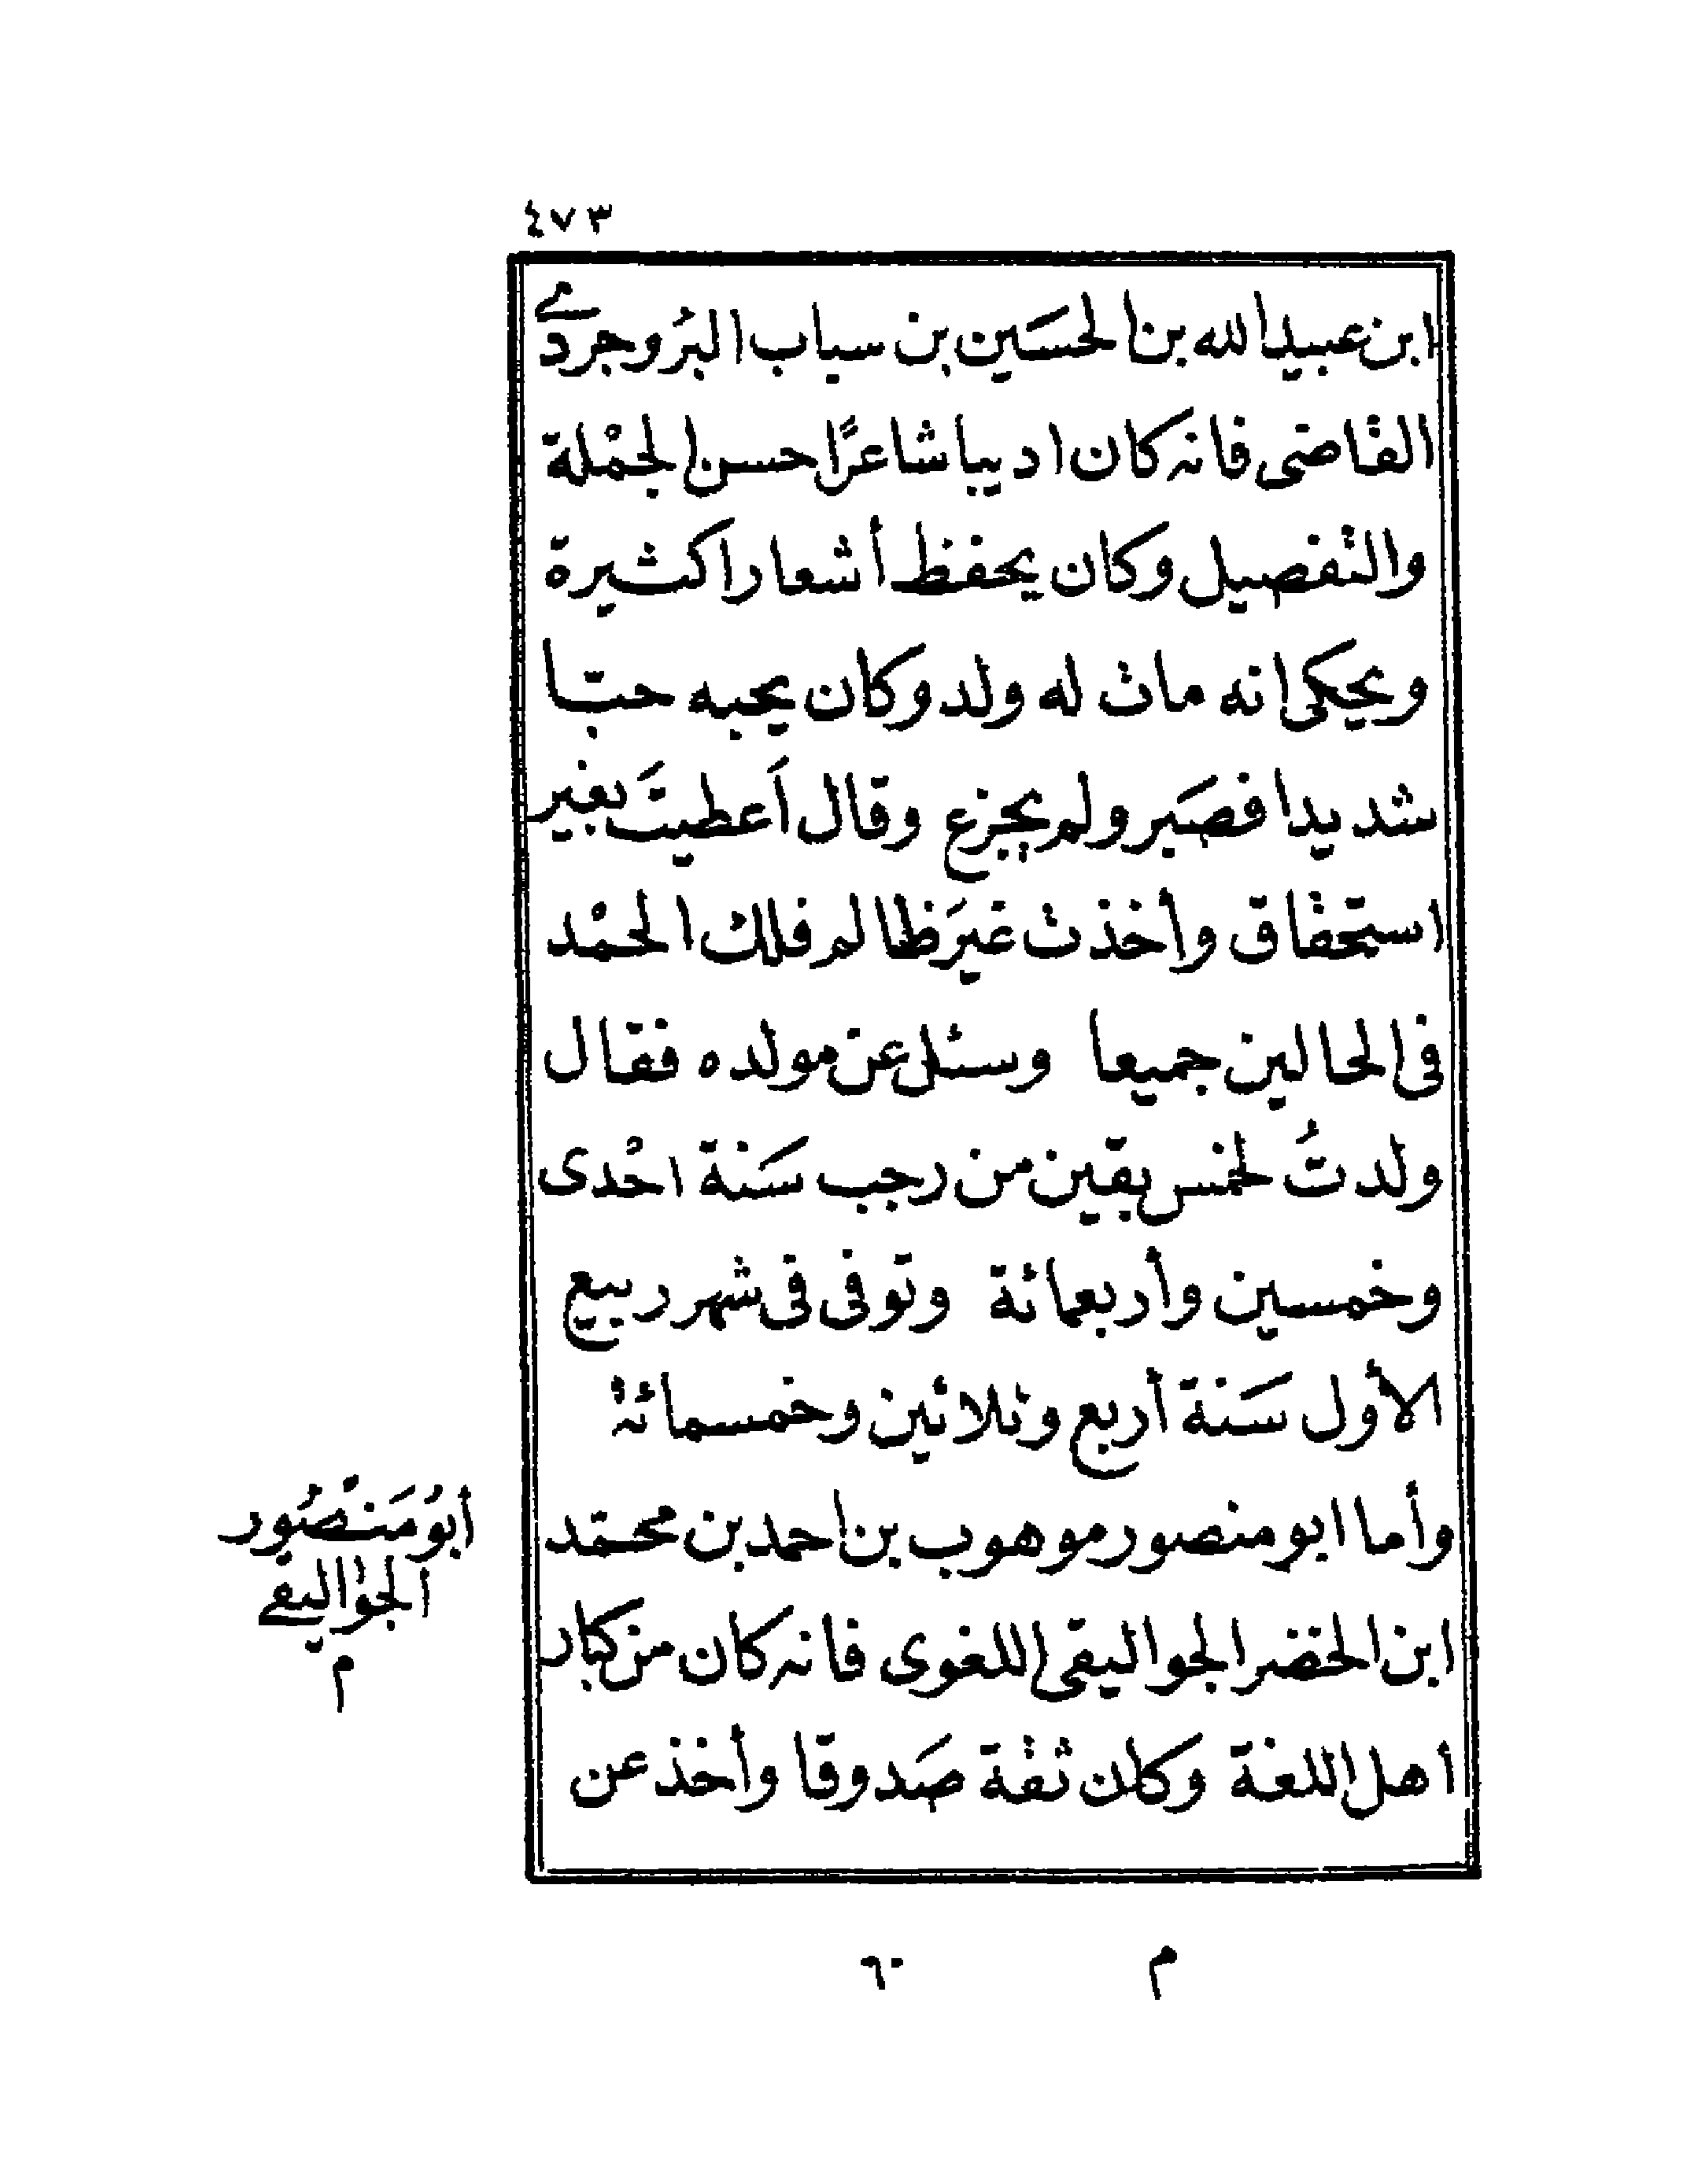 ٤٧٣
ابن عبيد الله بن الحسَين بن سياب البرُوجردي
القاضى فانه كان اديبا شاعرًا حسن الجمْلة
والتفصيل وكان يحفظ أشعارا كثيرة
ويحكى انه مات له ولد وكان يحبه حبّا
شديدا فصَبر ولم يجزع وقال اَعطيتَ بغير
استحقاق وأخذت غيرَ ظالم فلك الحمْد
فى الحالين جميعا وسئل عن مولده فقال
ولدتُ لخمس بقين من رجب سَنة احْدى
وخمسين وأربعمائة وتوفى فى شهر ربيع
الأول سَنة أربع وثلاثين وخمسمائة
وأما ابو منصور موهوب بن احمد بن محمّد
ابن الخضر الجواليقى اللغوى فانه كان من كبار
أهل اللغة وكان ثقة صَدوقا وأخذ عن
أبوُ مَنْصُور
الجواليقي
م
م ٦٠